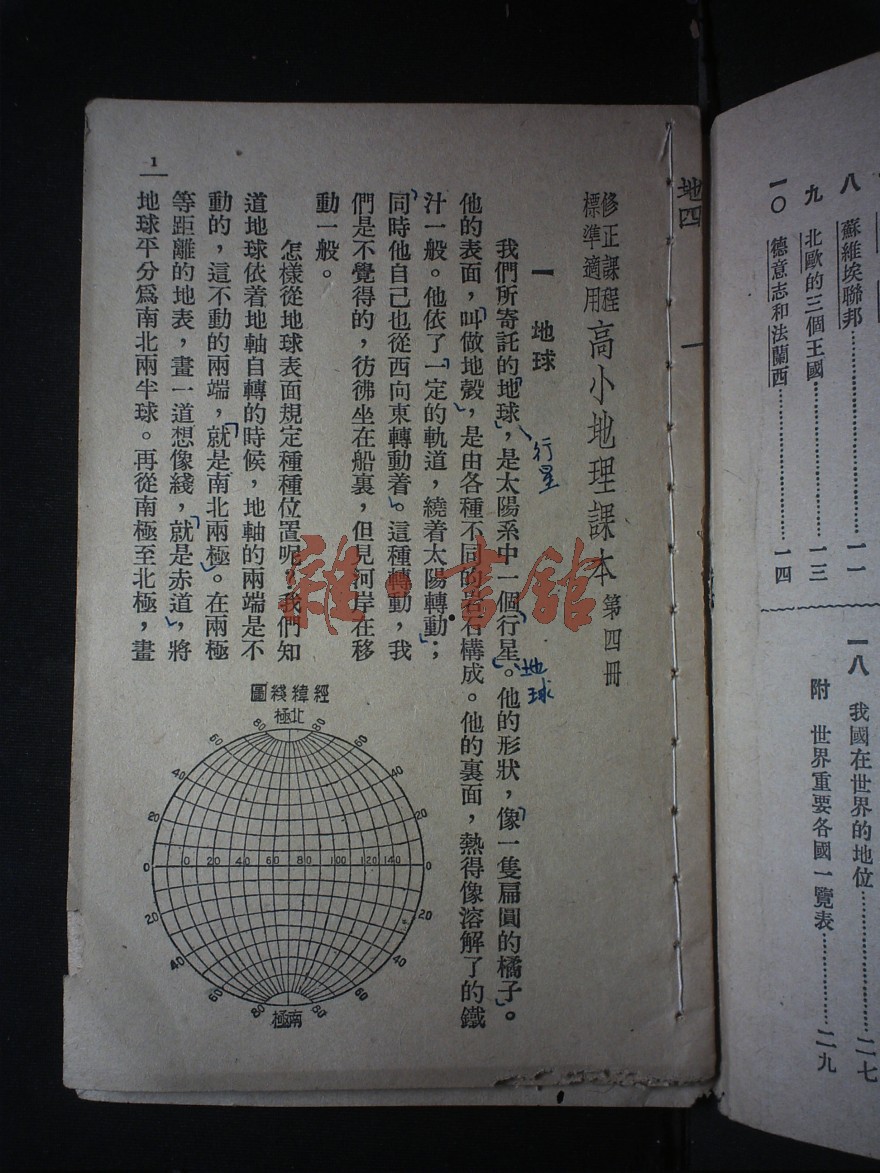 八 蘇維埃聯邦 一一
九 北歐的三個王國 一三
一〇 德意志和法蘭西 一四
一八 我國在世界的地位 二七
附 世界重要各國一覽表 二九
地四
一
修正課程
標準適用
高小地理課本 第四冊
一 地球
我們所寄託的地球,是太陽系中一個行星。他的形狀,像一隻扁圓的橘子。
他的表面,叫做地殼,是由各種不同的岩石構成。他的裏面,熱得像溶解了的鐵
汁一般。他依了一定的軌道,繞着太陽轉動;
同時他自己也從西向東轉動着。這種轉動,我
們是不覺得的,彷彿坐在船裏,但見河岸在移
動一般。
怎樣從地球表面規定種種位置呢?我們知
道地球依着地軸自轉的時候,地軸的兩端是不
動的,這不動的兩端,就是南北兩極。在兩極
等距離的地表,畫一道想像綫,就是赤道,將
地球平分爲南北兩半球。再從南極至北極,畫
1
行星
地球
經緯綫圖
北極
80 80
60 60
40 40
20 20
0 0 20 40 60 80 100 120 140 0
20 20
40 40
60 60
80 80
南極
雜·書館